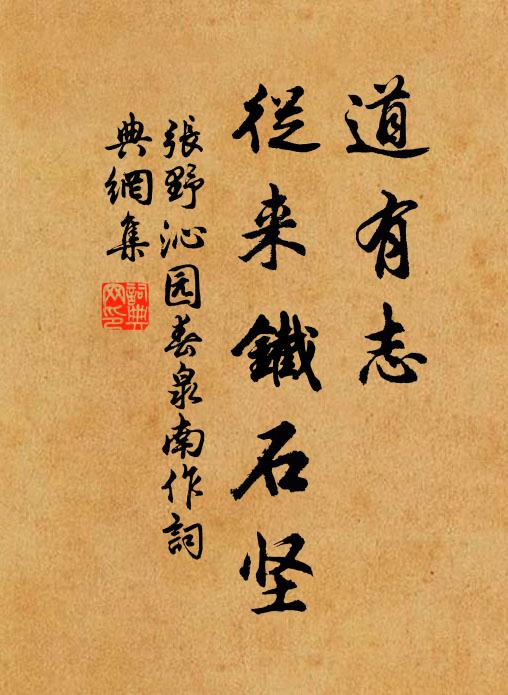 道有志
從来鐵石坚
張野沁园春泉南作詞
典網集
詞典网印